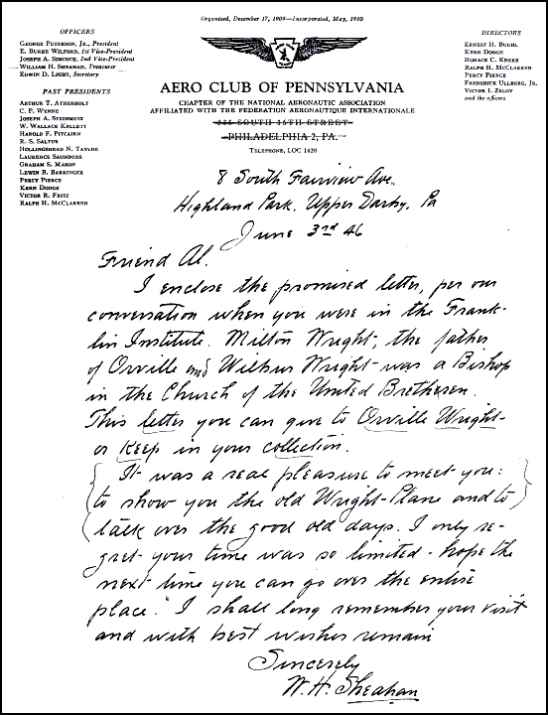 Organized, December 17, 1909—Incorporated, May, 1910
OFFICERS
GEORGE PETERSON, JR., President
E. BURKE WILFORD, 1st Vice-President
JOSEPH A. SIMONCE, 2nd Vice-President
WILLIAM H. SHEAHAN, Treasurer
EDWIN D. LIGHT, Secretary
PAST PRESIDENTS
ARTHUR T. ATHERHOLT
C. P. WYNNE
JOSEPH A. STEINMETZ
W. WALLACE KELLETT
HAROLD F. PITCAIRN
R. S. SALTUS
HOLLINSHEAD N. TAYLOR
LAURENCE SAUNDERS
GRAHAM S. MASON
LEWIN B. BARRINGER
PERCY PIERCE
KERN DODGE
VICTOR R. FRITZ
RALPH H. MCCLARREN
DIRECTORS
ERNEST H. BUEHL
KERN DODGE
HORACE C.
RALPH H. MCCLARREN
PERCY PIERCE
FREDERICK ULLBERG, JR.
VICTOR I. ZELOV
and the officers
AERO CLUB OF PENNSYLVANIA
CHAPTER OF THE NATIONAL AERONAUTIC ASSOCIATION
AFFILIATED WITH THE FEDERATION AERONAUTIQUE INTERNATIONALE
SOUTH 15TH STREET
PHILADELPHIA 2, PA.
TELEPHONE, LOC 1620
8 South Fairview Ave.
Highland Park, Upper Darby, Pa
June 3rd 46
Friend Al.
I enclose the promised letter, per our
conversation when you were in the Frank-
lin Institute. Milton Wright, the father
of Orville and Wilbur Wright - was a Bishop
in the Church of the United Bretheren.
This letter you can give to Orville Wright -
or Keep in your collection.
It was a real pleasure to meet you:
to show you the old Wright-Plane and to
talk over the good old days. I only re-
gret your time was so limited - hope the
next time you can go over the entire
place." I shall long remember your visit
and with best wishes remain
Sincerely
W. H. Sheahan